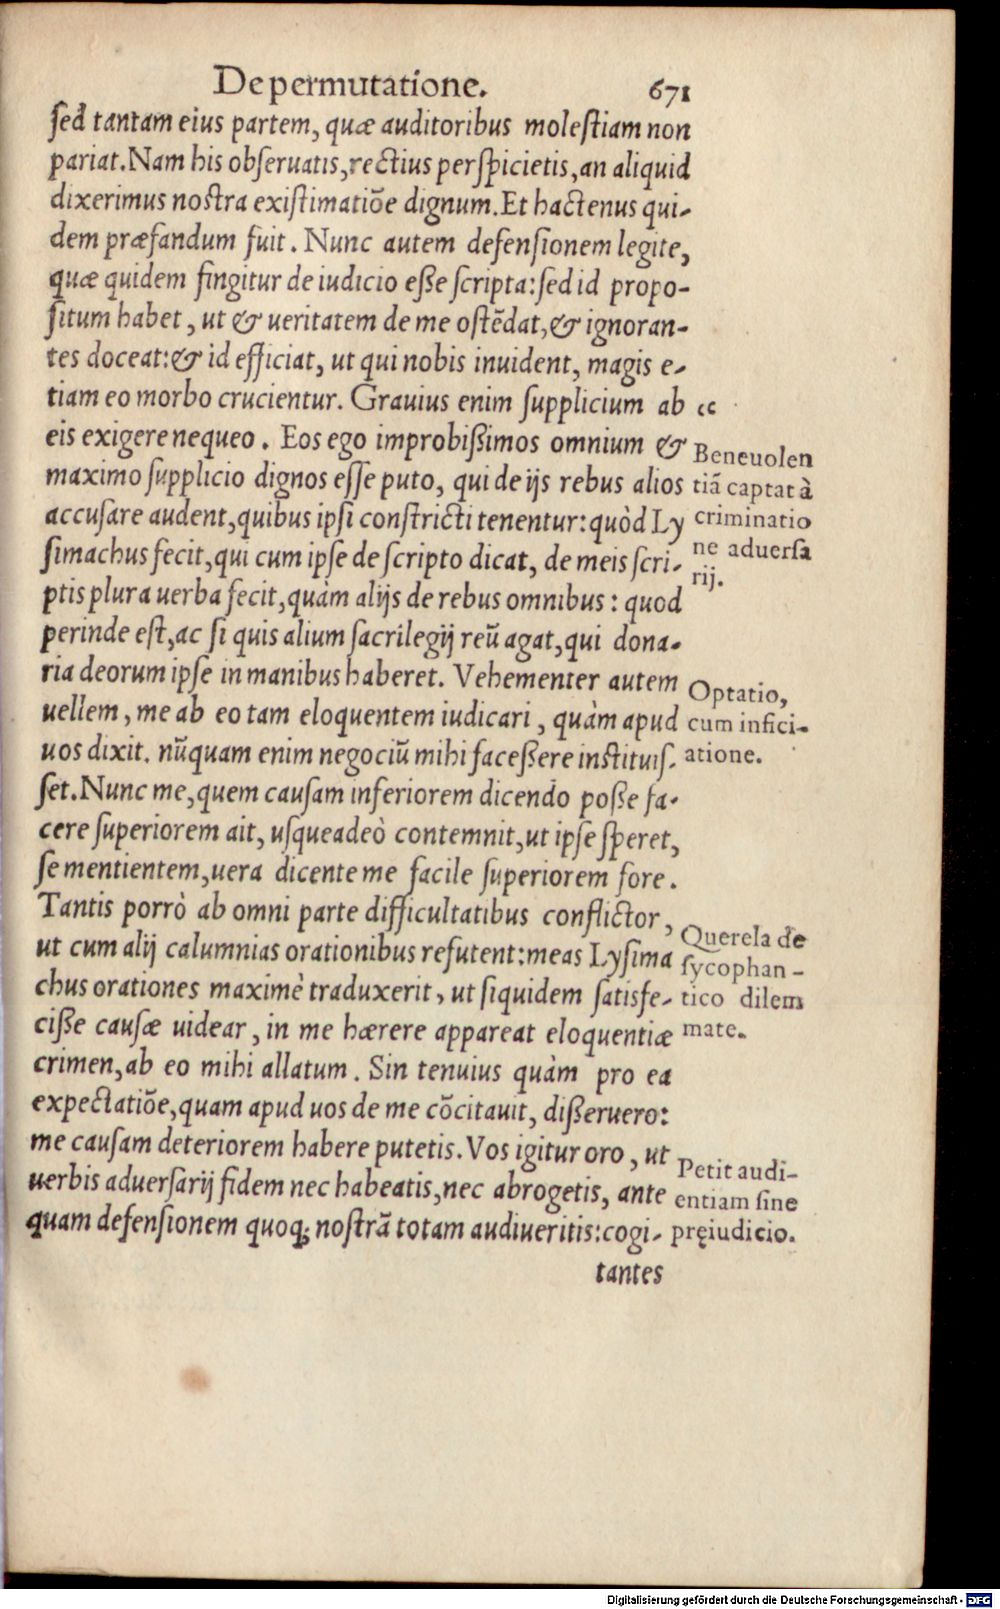 De permutatione. 671
ſed tantam eius partem, quæ auditoribus moleſtiam non
pariat. Nam his obſeruatis, rectius perſpicietis, an aliquid
dixerimus noſtra exiſtimatiōe dignum. Et hactenus qui-
dem præfandum fuit. Nunc autem defenſionem legite,
quæ quidem fingitur de iudicio eſſe ſcripta: ſed id propo-
ſitum habet, ut & ueritatem de me oſtēdat, & ignoran-
tes doceat: & id efficiat, ut qui nobis inuident, magis e-
tiam eo morbo crucientur. Grauius enim ſupplicium ab cc
eis exigere nequeo. Eos ego improbiſſimos omnium &
maximo ſupplicio dignos eſſe puto, qui de ijs rebus alios
accuſare audent, quibus ipſi conſtricti tenentur: quòd Ly
ſimachus fecit, qui cum ipſe de ſcripto dicat, de meis ſcri-
ptis plura uerba fecit, quàm alijs de rebus omnibus: quod
perinde eſt, ac ſi quis alium ſacrilegij reū agat, qui dona-
ria deorum ipſe in manibus haberet. Vehementer autem
uellem, me ab eo tam eloquentem iudicari, quàm apud
uos dixit. nūquam enim negociū mihi faceſſere inſtituiſ-
ſet. Nunc me, quem cauſam inferiorem dicendo poſſe fa-
cere ſuperiorem ait, uſqueadeò contemnit, ut ipſe ſperet,
ſe mentientem, uera dicente me facile ſuperiorem fore.
Tantis porrò ab omni parte difficultatibus conflictor,
ut cum alij calumnias orationibus refutent: meas Lyſima
chus orationes maximè traduxerit, ut ſiquidem ſatisfe-
ciſſe cauſæ uidear, in me hærere appareat eloquentiæ
crimen, ab eo mihi allatum. Sin tenuius quàm pro ea
expectatiōe, quam apud uos de me cōcitauit, diſſeruero:
me cauſam deteriorem habere putetis. Vos igitur oro, ut
uerbis aduerſarij fidem nec habeatis, nec abrogetis, ante
quam defenſionem quoq; noſtrā totam audiueritis: cogi-
tantes
Beneuolen
tiā captat à
criminatio
ne aduerſa
rij.
Optatio,
cum infici-
atione.
Querela de
ſycophan-
tico dilem
mate.
Petit audi-
entiam ſine
pręiudicio.
Digitalisierung gefördert durch die Deutsche Forschungsgemeinschaft - DFG